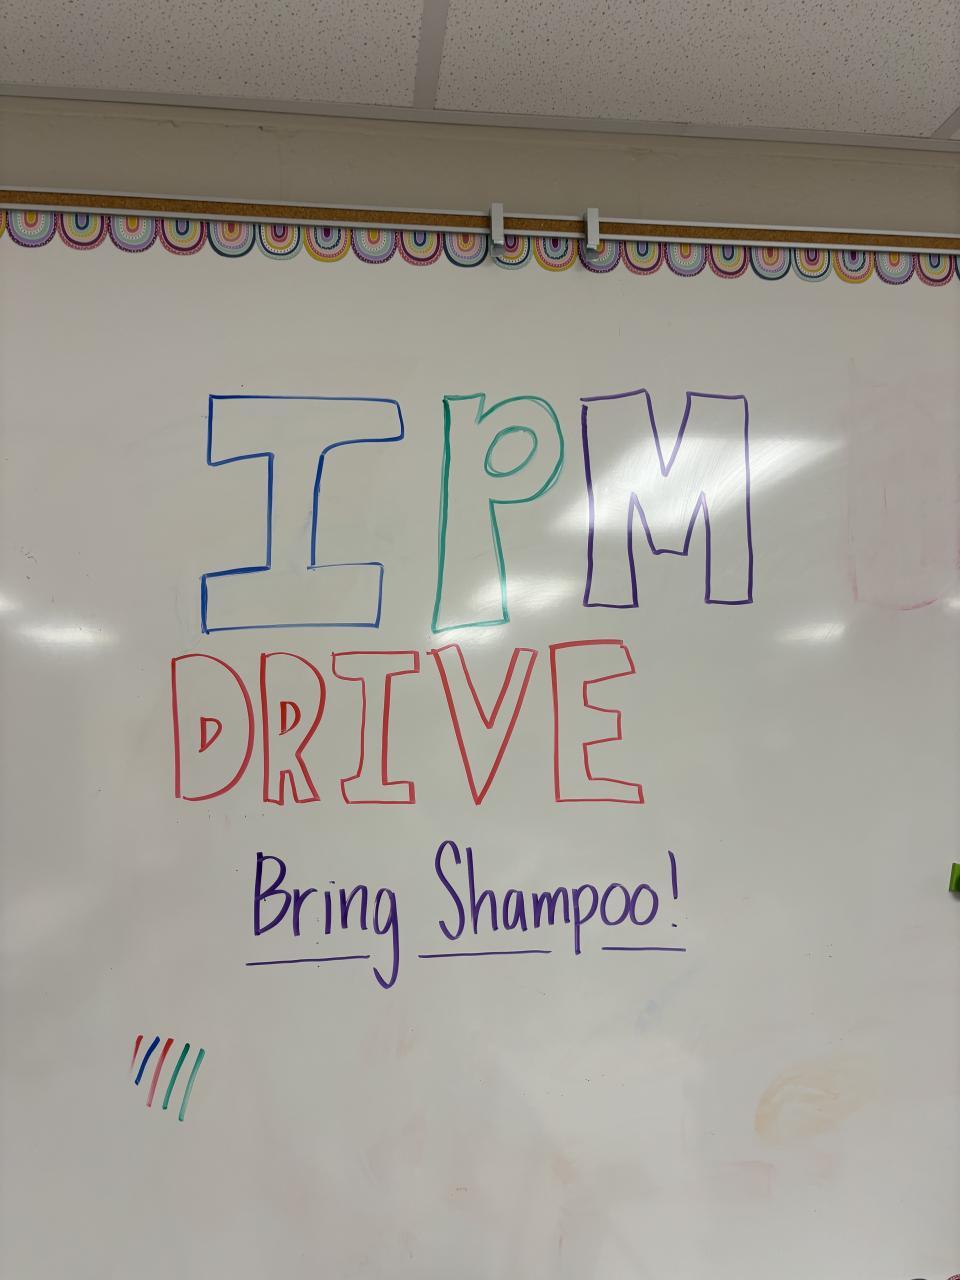 IPM
DRIVE
Bring Shampoo!